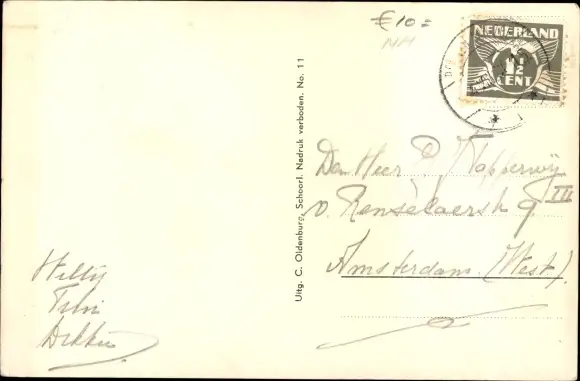 € 10 =
NH
NEDERLAND
1½
CENT
Uitg. C. Oldenburg, Schoorl. Nadruk verboden. No. 11
Den Heer P. Klapperwij
v. Renselaerstr 9 III
Amsterdam (West).
Willy
Dekker